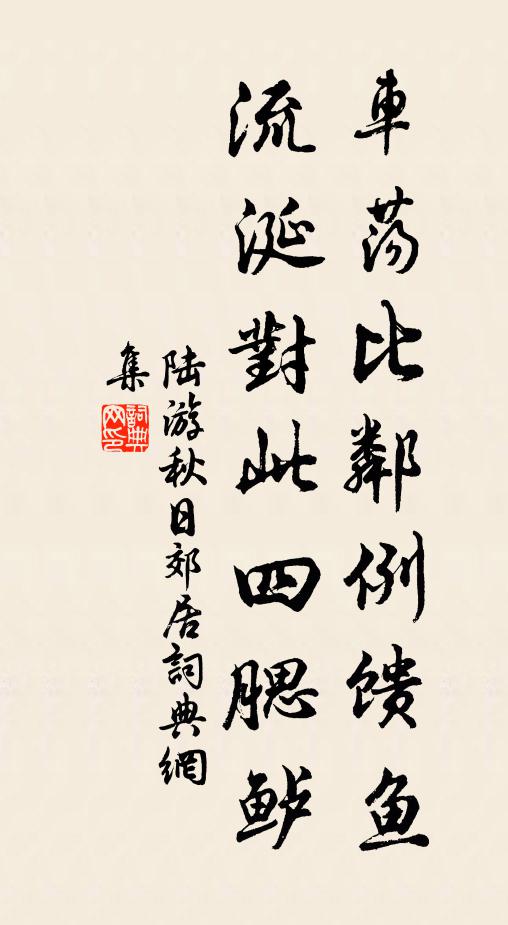 車荡比鄰例馈鱼
流涎對此四腮鲈
陆游秋日郊居詞典網
集
詞典网印